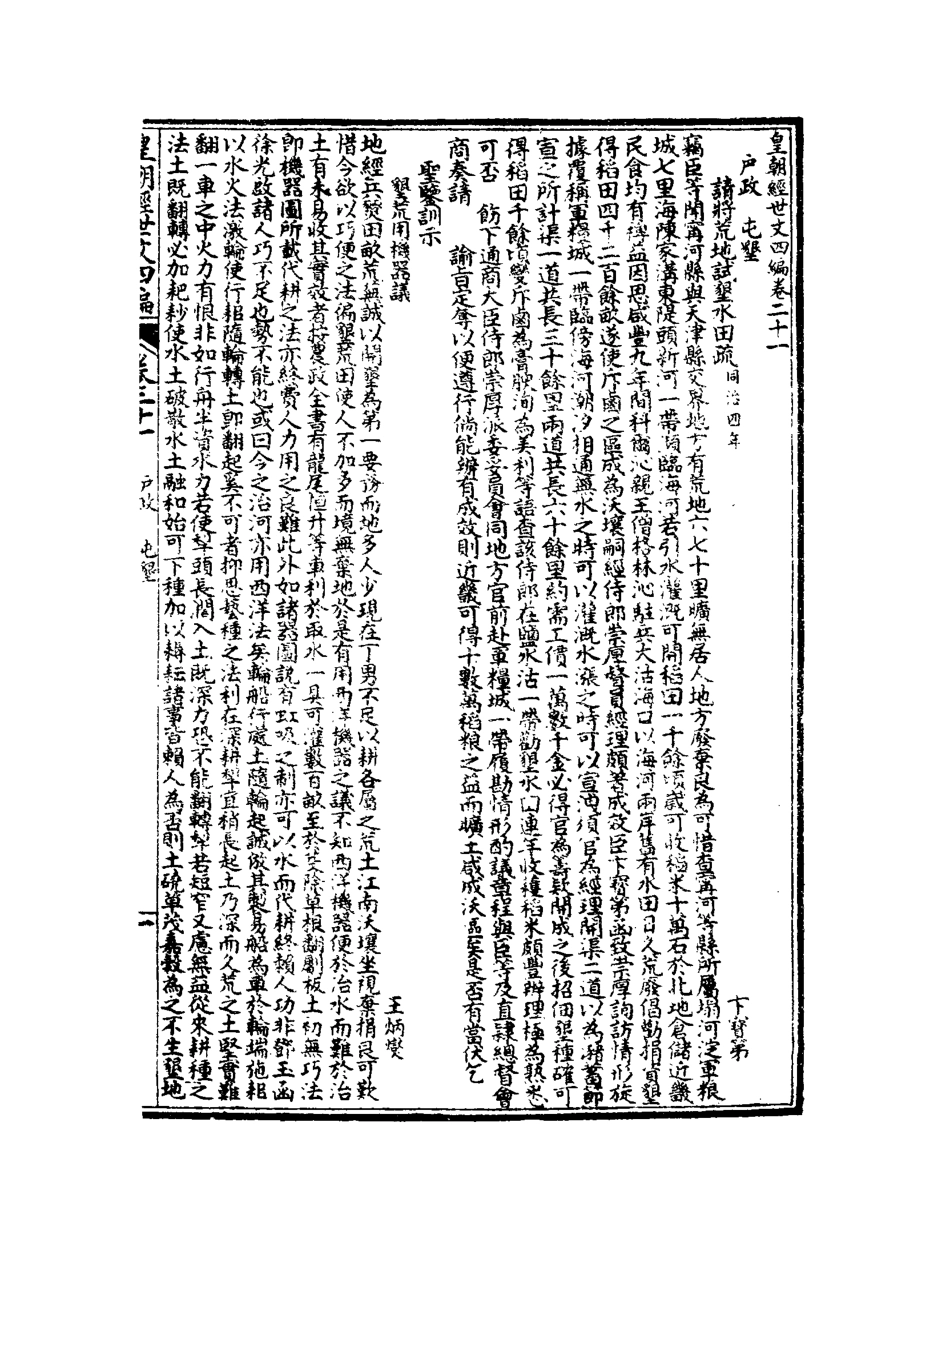 皇朝經世文四編卷二十一
戶政　屯墾
請將荒地試墾水田疏同治四年　卞寶第
竊臣等聞甯河縣與天津縣交界地方有荒地六七十里曠無居人地方廢棄良為可惜查甯河等縣所屬塌河淀軍粮
城七里海陳家溝東隄頭新河一帶頻臨海河若引水灌溉可開稻田一千餘頃歲可收稻米十萬石於北地倉儲近畿
民食均有裨益因思咸豐九年間科爾沁親王僧格林沁駐兵大沽海口以海河兩岸舊有水田日久荒廢倡勸捐貲墾
得稻田四千二百餘畝遂使斥鹵之區成為沃壤嗣經侍郎崇厚督員經理頗著成效臣卞寶第函致崇厚詢訪情形旋
據覆稱軍糧城一帶臨傍海河潮汐相通無水之時可以灌溉水漲之時可以宣洩須官為經理開渠二道以為瀦蓄即
宣之所計渠一道共長三十餘里兩道共長六十餘里約需工價一萬數千金必得官為籌款開成之後招佃墾種確可
得稻田千餘頃變斥鹵為膏腴洵為美利等語查該侍郎在鹽水沽一帶勸墾水田連年收穫稻米頗豐辦理極為熟悉
可否　飭下通商大臣侍郎崇厚派委妥員會同地方官前赴軍糧城一帶履勘情形酌議章程與臣等及直隸總督會
商奏請　諭旨定奪以便遵行倘能辦有成效則近畿可得十數萬稻粮之益而曠土咸成沃區矣是否有當伏乞
聖鑒訓示
墾荒用機器議　王炳燮
地經兵燹田畝荒蕪誠以開墾為第一要務而地多人少現在丁男不足以耕各屬之荒土江南沃壤坐視棄捐良可歎
惜今欲以巧便之法徧墾荒田使人不加多而境無棄地於是有用西洋機器之議不知西洋機器便於治水而難於治
土有未易收其實效者按農政全書有龍尾恒升等車利於取水一具可灌數百畝至於芟除草根翻劚板土初無巧法
即機器圖所載代耕之法亦終費人力用之良難此外如諸器圖說有虹吸之制亦可以水而代耕終賴人功非鄧玉函
徐光啟諸人巧不足也勢不能也或曰今之治河亦用西洋法矣輪船行處土隨輪起誠倣其製易船為車於輪端施耜
以水火法激輪使行耜隨輪轉土即翻起奚不可者抑思藝種之法利在深耕犂宜稍長起土乃深而久荒之土堅實難
翻一車之中火力有恨非如行舟半資水力若使犂頭長闊入土既深力恐不能翻轉犂若短窄又慮無益從來耕種之
法土既翻轉必加耙耖使水土破散水土融和始可下種加以耨耘諸事皆賴人為否則土磽草茂嘉穀為之不生墾地
皇朝經世文四編　卷二十一　戶政　屯墾　一